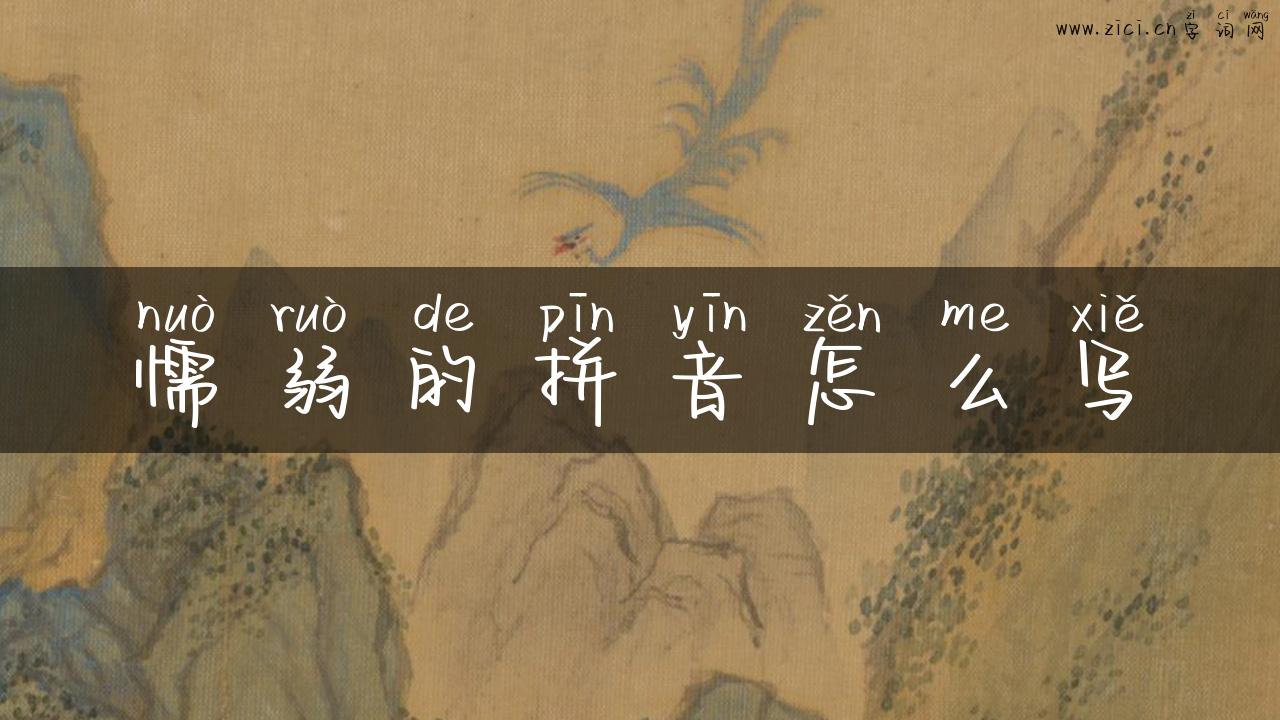 zì cí wǎng
www.zici.cn字词网
nuò ruò de pīn yīn zěn me xiě
懦弱的拼音怎么写